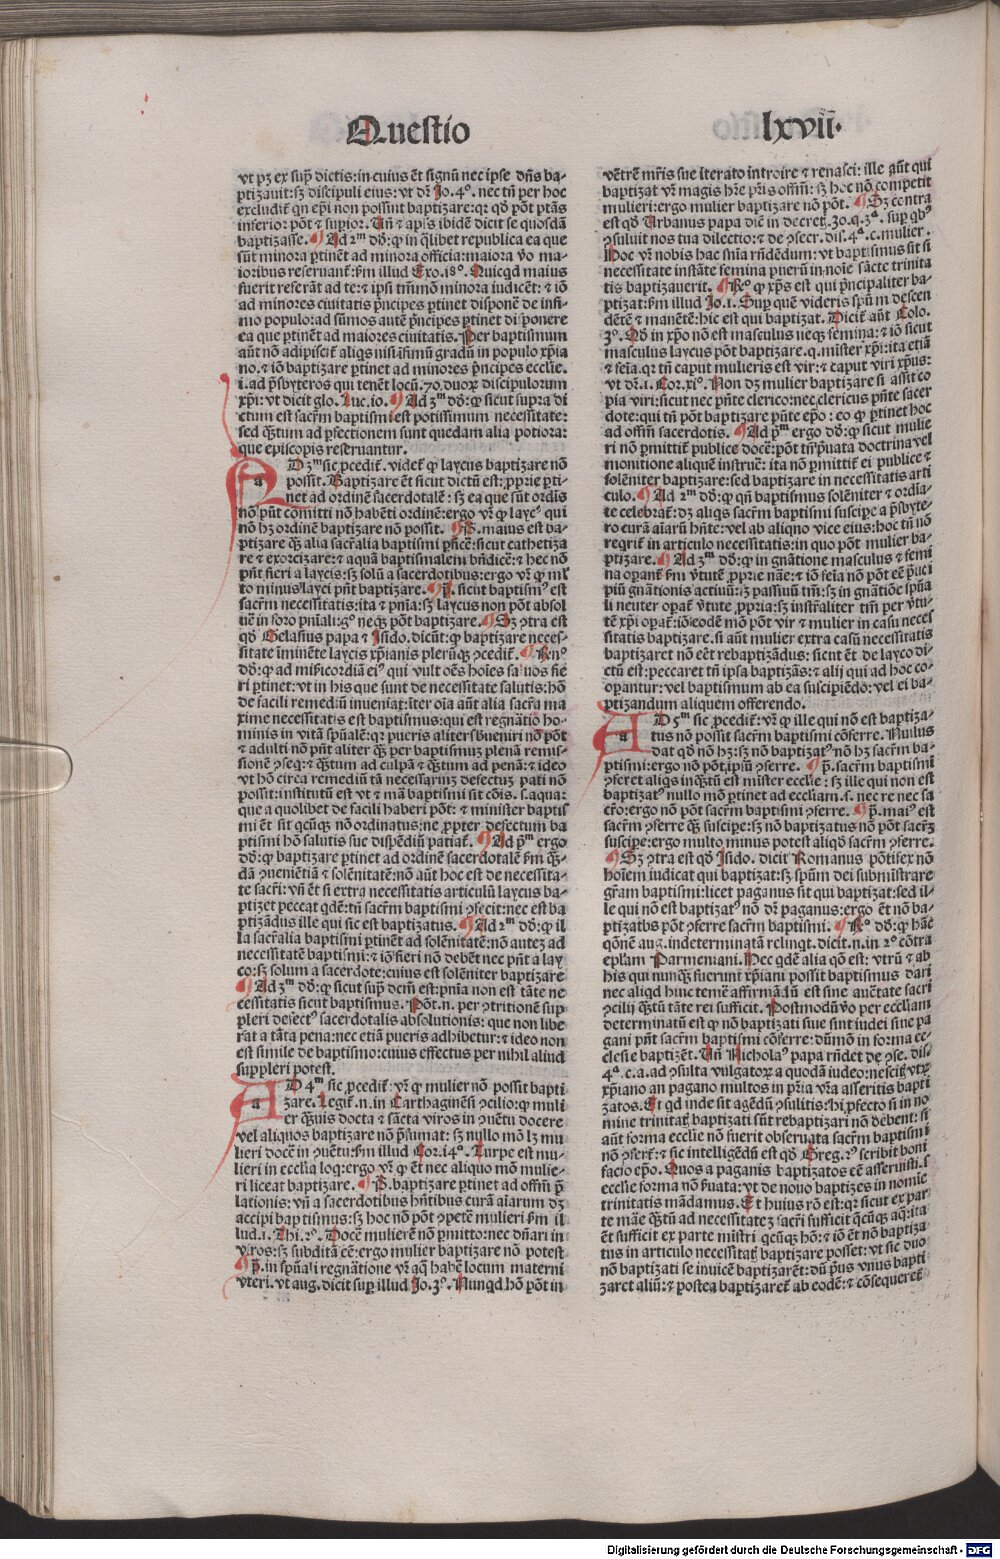 Questio lxvii.
vt pꝫ ex supͣ dictis: in cuius ēt signū nec ipse dn̄s ba⸗
ptizauit: sꝫ discipuli eius: vt dr̄ Jo. 4º. nec tn̄ per hoc
excludit᷑ qn epi̅ non possint baptizare: qꝛ qd̓ pōt ptās
inferioꝛ: pōt ⁊ supioꝛ. Un̄ ⁊ apl̓s ibidē dicit se quosdā
baptizasse. Ad 2ᵐ dō: ꝙ in qͣlibet republica ea que
sūt minora ꝑtinēt ad minora officia: maiora ṽo ma⸗
ioribus reseruant᷑: ẜm illud Exo. 18º. Quicqd maius
fuerit referāt ad te: ⁊ ipsi tm̄mō minora iudicēt: ⁊ iō
ad minores ciuitatis pͥncipes ꝑtinet disponē de infi⸗
mo populo: ad sūmos autē pͥncipes ꝑtinet disponere
ea que ꝑtinēt ad maiores ciuitatis. Per baptismum
aūt nō adipiscit᷑ aliqs nisi ifimū gradū in populo xp̄ia
no. ⁊ iō baptizare ꝑtinet ad minores pͥncipes ecclie.
i. ad p̄sbyteros qui tenēt locū .70. duoꝝ discipulorum
xp̄i: vt dicit glo. Luc. io. Ad 3ᵐ dō: ꝙ sicut supra di
ctum est sacr̄m baptismi est potissimum necessitate:
sed qꝫtum ad ꝑfectionem sunt quedam alia potiora:
que episcopis reseruantur.
AD 3ᵐ sic ꝓcedit᷑. videt᷑ ꝙ laycus baptizare nō
possit. Baptizare ēt sicut dictū est: ꝓprie ꝑti⸗
net ad ordinē sacerdotalē: sꝫ ea que sūt ordīs
nō pn̄t cōmitti nō habēti ordinē: ergo vr̄ ꝙ laycꝰ qui
nō hꝫ ordinē baptizare nō possit. P̄. maius est ba⸗
ptizare qꝫ alia sacr̄alia baptismi ꝑficē: sicut cathetiza
re ⁊ exorcizare: ⁊ aquā baptismalem bn̄dicē: ⁊ hec nō
pn̄t fieri a laycis: sꝫ solū a sacerdotibus: ergo vr̄ ꝙ ml̓
to minus layci pn̄t baptizare. P̄. sicut baptismꝰ est
sacr̄m necessitatis: ita ⁊ pn̄ia: sꝫ laycus non pōt absol
uē in foro pn̄iali: gͦ neqꝫ pōt baptizare. Sꝫ ꝯtra est
qd̓ Gelasius papa ⁊ Isido. dicūt: ꝙ baptizare neces⸗
sitate iminēte laycis xp̄ianis plerūqꝫ ꝯcedit᷑. Rn̄º
dō: ꝙ ad mīẜicordiā eiꝰ qui vult oēs hoīes saluos fie
ri ꝑtinet: vt in his que sunt de necessitate salutis: hō
de facili remediū inueniat: īter oīa aūt alia sacr̄a ma
xime necessitatis est baptismus: qui est regnātio ho⸗
minis in vitā spūalē: qꝛ pueris aliter sbueniri nō pōt
⁊ adulti nō pn̄t aliter qꝫ per baptismuꝫ plenā remis⸗
sionē ꝯseq: ⁊ qꝫtum ad culpā ⁊ qꝫtum ad penā: ⁊ ideo
vt hō circa remediū tā necessariuꝫ defectuꝫ pati nō
possit: institutū est vt ⁊ mā baptismi sit cōis. s. aqua:
que a quolibet de facili haberi pōt: ⁊ minister baptis
mi ēt sit qcūqꝫ nō ordinatus: ne ꝓpter defectum ba
ptismi hō salutis sue dispēdiū patiat᷑. Ad pͫ ergo
dō: ꝙ baptizare ꝑtinet ad ordinē sacerdotalē ẜm qꝫ⸗
dā ꝯueniētiā ⁊ solēnitatē: nō aūt hoc est de necessita⸗
te sacr̄i: vn̄ ēt si extra necessitatis articulū laycus ba⸗
ptizet peccat qdē: tn̄ sacr̄m baptismi ꝯfecit: nec est ba
ptizādus ille qui sic est baptizatus. Ad 2ᵐ dō: ꝙ il
la sacr̄alia baptismi ꝑtinēt ad solēnitatē: nō auteꝫ ad
necessitatē baptismi: ⁊ iō fieri nō debēt nec pn̄t a lay
co: sꝫ solum a sacerdote: cuius est solēniter baptizare
Ad 3ᵐ dō: ꝙ sicut supͣ dcm̄ est: pn̄ia non est tāte ne
cessitatis sicut baptismus. Pōt. n. per ꝯtritionē sup
pleri defectꝰ sacerdotalis absolutionis: que non libe
rat a tāta pena: nec etiā pueris adhibetur: ⁊ ideo non
est simile de baptismo: cuius effectus per nihil aliud
suppleri potest.
AD 4ᵐ sic ꝓcedit᷑: vr̄ ꝙ mulier nō possit bapti
zare. Legit᷑. n. in Carthaginēsi ꝯcilio: ꝙ muli
er qꝫuis docta ⁊ sācta viros in ꝯuētu docere
vel aliquos baptizare nō p̄sumat: sꝫ nullo mō lꝫ mu
lieri docē in ꝯuētu: ẜm illud Cor. 14º. Turpe est mu⸗
lieri in ecclia loq: ergo vr̄ ꝙ ēt nec aliquo mō mulie⸗
ri liceat baptizare. P̄. baptizare ꝑtinet ad offm̄ p̄
lationis: vn̄ a sacerdotibus hn̄tibus curā aīarum dꝫ
accipi baptismus: sꝫ hoc nō pōt ꝯpetē mulieri ẜm il⸗
lud. 1. Thi. 2º. Docē mulierē nō ꝑmitto: nec dn̄ari in
viros: sꝫ subditā eē: ergo mulier baptizare nō potest
P̄. in spūali regnātione vr̄ aqͣ habē locum materni
vteri. vt aug. dicit sup illud Jo. 3º. Nunqd hō pōt in
vētrē mr̄is sue iterato introire ⁊ renasci: ille aūt qui
baptizat vr̄ magis hr̄e pr̄is offm̄: sꝫ hoc nō competit
mulieri: ergo mulier baptizare nō pōt. Sꝫ contra
est qd̓ Urbanus papa dic̄ in decretꝭ. 30. q. 3ᵃ. sup qbꝰ
ꝯsuluit nos tua dilectio: ⁊ de ꝯsecr. dis. 4ᵃ. c. mulier.
Hoc vr̄ nobis hac snīa rn̄dēdum: vt baptismus sit si
necessitate instāte femina puerū in noīe sācte trinita
tis baptizauerit. Rº ꝙ xp̄s est qui pͥncipaliter ba⸗
ptizat: ẜm illud Jo. 1. Supͣ quē videris spm̄ descen
dētē ⁊ manētē: hic est qui baptizat. Dicit᷑ aūt Colo.
3º. Qd̓ in xp̄o nō est masculus neqꝫ femina: ⁊ iō sicut
masculus laycus pōt baptizare. q. mīster xp̄i: ita etiā
⁊ feīa. qꝛ tn̄ caput mulieris est vir: ⁊ caput viri xp̄us:
vt dr̄. 1. Cor. xiº. Non dꝫ mulier baptizare si assit co
pia viri: sicut nec pn̄te clerico: nec clericus pn̄te sacer
dote: qui tn̄ pōt baptizare pn̄te epo̅: eo ꝙ ꝑtinet hoc
ad offm̄ sacerdotis. Ad pͫ ergo dō: ꝙ sicut mulie
ri nō ꝑmittit᷑ publice docē: pōt tn̄ pͥuata doctrina vel
monitione aliquē instruē: ita nō ꝑmittit᷑ ei publice ⁊
solēniter baptizare: sed baptizare in necessitatis arti
culo. Ad 2ᵐ dō: ꝙ qn̄ baptismus solēniter ⁊ ordīa⸗
te celebrat᷑: dꝫ aliqs sacr̄m baptismi suscipe a p̄sbyte⸗
ro curā aīarū hn̄te: vel ab aliquo vice eius: hoc tn̄ nō
reqrit᷑ in articulo necessitatis: in quo pōt mulier ba⸗
ptizare. Ad 3ᵐ dō: ꝙ in gnātione masculus ⁊ femi
na operant᷑ ẜm v̓tutē ꝓprie nāe: ⁊ iō feīa nō pōt eē pͥnci
piū gnātionis actiuū: sꝫ passiuū tm̄: sꝫ in gnātiōe spūa
li neuter opat᷑ v̓tute ꝓpria: sꝫ instr̄aliter tm̄ per v̓tu⸗
tē xp̄i opat᷑: iō eodē mō pōt vir ⁊ mulier in casu neces
sitatis baptizare. si aūt mulier extra casū necessitatis
baptizaret nō eēt rebaptizādus: sicut ēt de layco di⸗
ctū est: peccaret tn̄ ipsa baptizās: ⁊ alij qui ad hoc co⸗
opantur: vel baptismum ab ea suscipiēdo: vel ei ba⸗
ptizandum aliquem offerendo.
AD 5ᵐ sic ꝓcedit᷑: vr̄ ꝙ ille qui nō est baptiza⸗
tus nō possit sacr̄m baptismi cōferre. Nullus
dat qd̓ nō hꝫ: sꝫ nō baptizatꝰ nō hꝫ sacr̄m ba⸗
ptismi: ergo nō pōt ipsū ꝯferre. P̄. sacr̄m baptismi
ꝯferet aliqs inqꝫtū est mīster ecclie: sꝫ ille qui non est
baptizatꝰ nullo mō ꝑtinet ad eccliam. s. nec re nec sa
cr̄o: ergo nō pōt sacr̄m baptismi ꝯferre. P̄. maiꝰ est
sacr̄m ꝯferre qꝫ suscipe: sꝫ nō baptizatus nō pōt sacrꝫ
suscipe: ergo multo minus potest aliqd̓ sacr̄m ꝯferre.
Sꝫ ꝯtra est qd̓ Isido. dicit Romanus pōtifex nō
hoīem iudicat qui baptizat: sꝫ spūm dei submīstrare
gr̄am baptismi: licet paganus sit qui baptizat: sed il⸗
le qui nō est baptizatꝰ nō dr̄ paganus: ergo ēt nō ba⸗
ptizatus pōt ꝯferre sacr̄m baptismi. Rº dō: ꝙ hāc
qōnē aug. indeterminatā relinqt. dicit. n. in 2º cōtra
epl̓am Parmeniani. Hec qdē alia qō est: vtrū ⁊ ab
his qui nunqꝫ fuerunt xp̄iani possit baptismus dari
nec aliqd hinc temē affirmādū est sine auc̄tate sacri
ꝯcilij qꝫtū tāte rei sufficit. Postmodū v̄o per eccliam
determinatū est ꝙ nō baptizati siue sint iudei siue pa
gani pn̄t sacr̄m baptismi cōferre: dūmō in forma ec⸗
clesie baptizēt. Un̄ Nicholaꝰ papa rn̄det de ꝯse. dis⸗
4ᵃ. c. a. ad ꝯsulta vulgatoꝝ a quodā iudeo: nescitꝭ vtꝝ
xp̄iano an pagano multos in pr̄ia vr̄a asseritis bapti
zatos. Et qd inde sit agēdū ꝯsulitis: hi ꝓfecto si in no
mine trinitatꝭ baptizati sūt rebaptizari nō debent: si
aūt forma ecclie nō fuerit obseruata sacr̄m baptismi
nō ꝯfert᷑: ⁊ sic intelligēdū est qd̓ Greg. 2ꝰ scribit boni
facio epo̅. Quos a paganis baptizatos eē asseruisti. si
ecclie forma nō ẜuata: vt de nouo baptizes in nomīe
trinitatis mādamus. Et huius rō est: qꝛ sicut ex par⸗
te māe qꝫtū ad necessitateꝫ sacr̄i sufficit qͣcūqꝫ aqͣ: ita
ēt sufficit ex parte mīstri qcūqꝫ hō: ⁊ iō ēt nō baptiza
tus in articulo necessitatꝭ baptizare posset: vt sic duo
nō baptizati se inuicē baptizarēt: dū pͥus vnus bapti
zaret aliū: ⁊ postea baptizaret᷑ ab eodē: ⁊ cōsequeret᷑
Digitalisierung gefördert durch die Deutsche Forschungsgemeinschaft - DFG